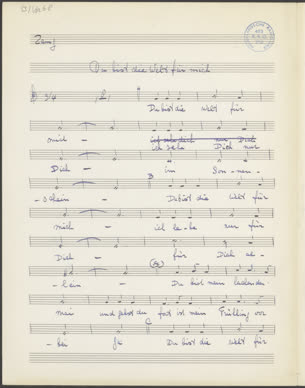 Du bist die Welt für mich
3/4
Du bist die Welt für
mich - ich sehe Dich nur
Dich - im Son-nen-
- schein - Du bist die Welt für
B
mich - ich le-be nur für
Dich - für Dich al-
- lein - Du bist mein
mein und gehst du fort ist mein Frühling vor
C
- bei ja Du bist die Welt für